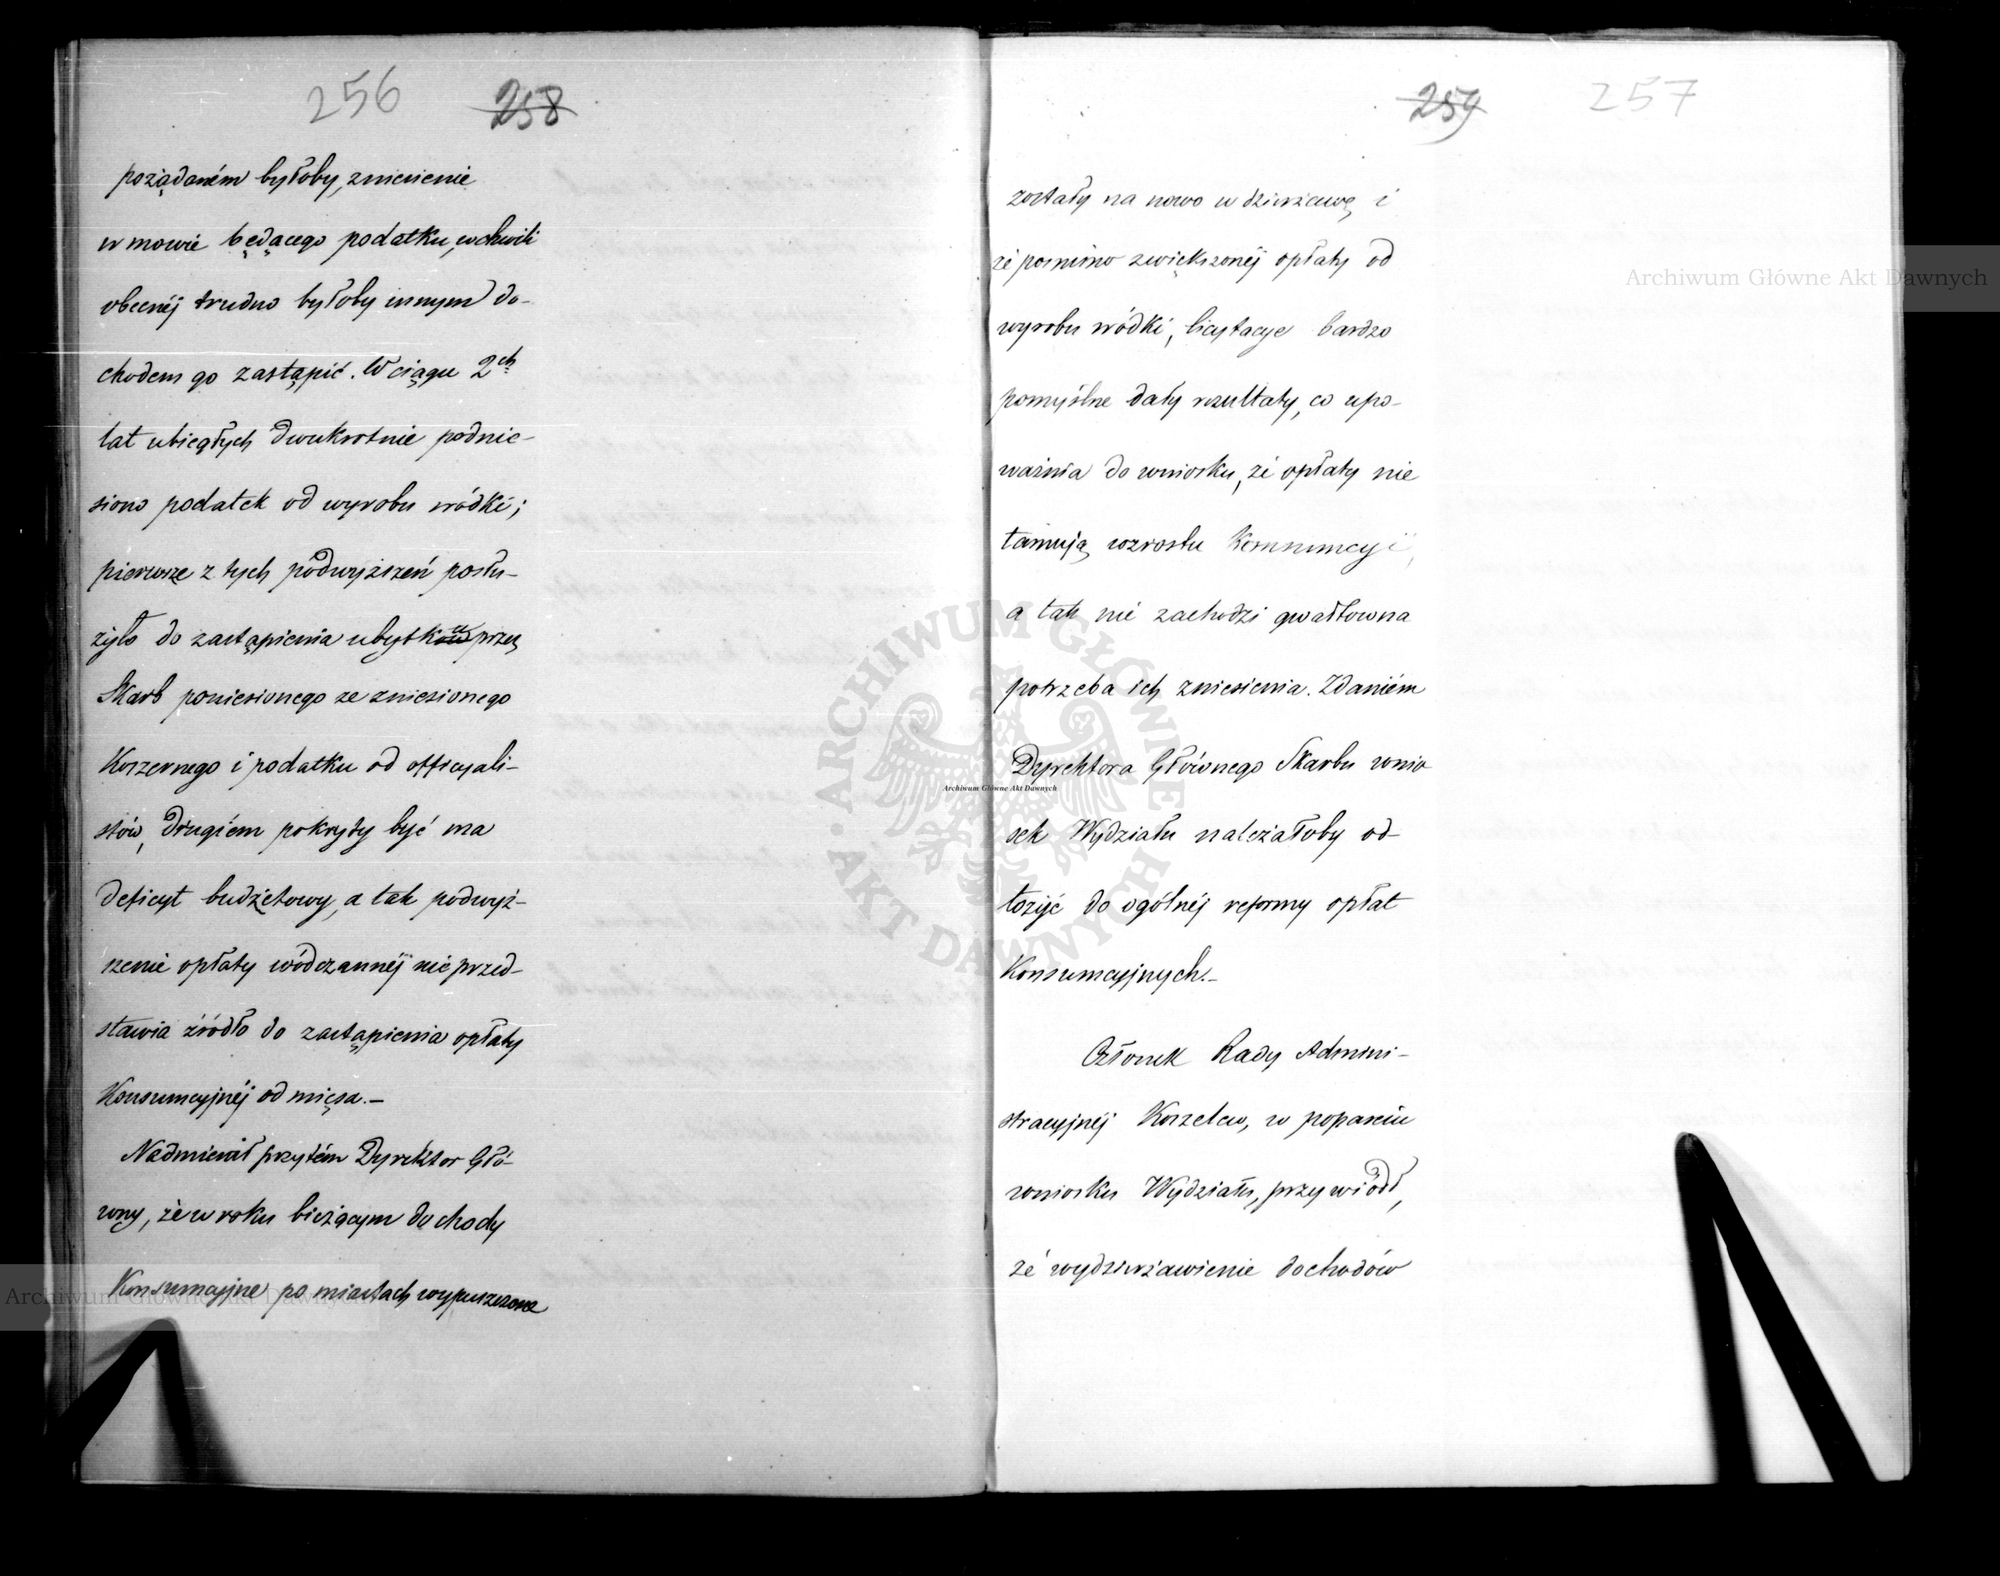 256 258
pożądaném byłoby, zniesienie
w mowie będącego podatku, w chwili
obecnéj trudno byłoby innym do-
chodem go zastąpić. W ciągu 2ch
lat ubiegłych dwukrotnie podnie-
siono podatek od wyrobu wódki;
pierwsze z tych podwyższeń posłu-
żyło do zastąpienia ubytku przez
Skarb poniesionego ze zniesionego
Koszernego i podatku od officyali-
stów, drugiém pokryty być ma
deficyt budżetowy, a tak podwyż-
szenie opłaty wódczannéj nie przed-
stawia źródło do zastąpienia opłaty
Konsumcyjnéj od mięsa.—
Nadmienił przytém Dyrektor Głó-
wny, że w roku bieżącym dochody
Konsumcyjne po miastach wypuszczone
259 257
zostały na nowo w dzierżawę, i
że pomimo zwiększonéj opłaty od
wyrobu wódki, licytacye bardzo
pomyślne dały rezultaty, co upo-
ważnia do wniosku, że opłaty nie
tamują wzrostu Konsumcyi,
a tak nie zachodzi gwałtowna
potrzeba ich zniesienia. Zdaniém
Dyrektora Głównego Skarbu wnio
sek Wydziału należałoby od-
łożyć do ogólnéj reformy opłat
Konsumcyjnych.—
Członek Rady Admini-
stracyjnéj Korzelew, w poparciu
wniosku Wydziału, przywiódł,
że wydzierżawienie dochodów
Archiwum Główne Akt Dawnych
Archiwum Główne Akt Dawnych
Archiwum Główne Akt Dawnych
ARCHIWUM GŁÓWNE AKT DAWNYCH